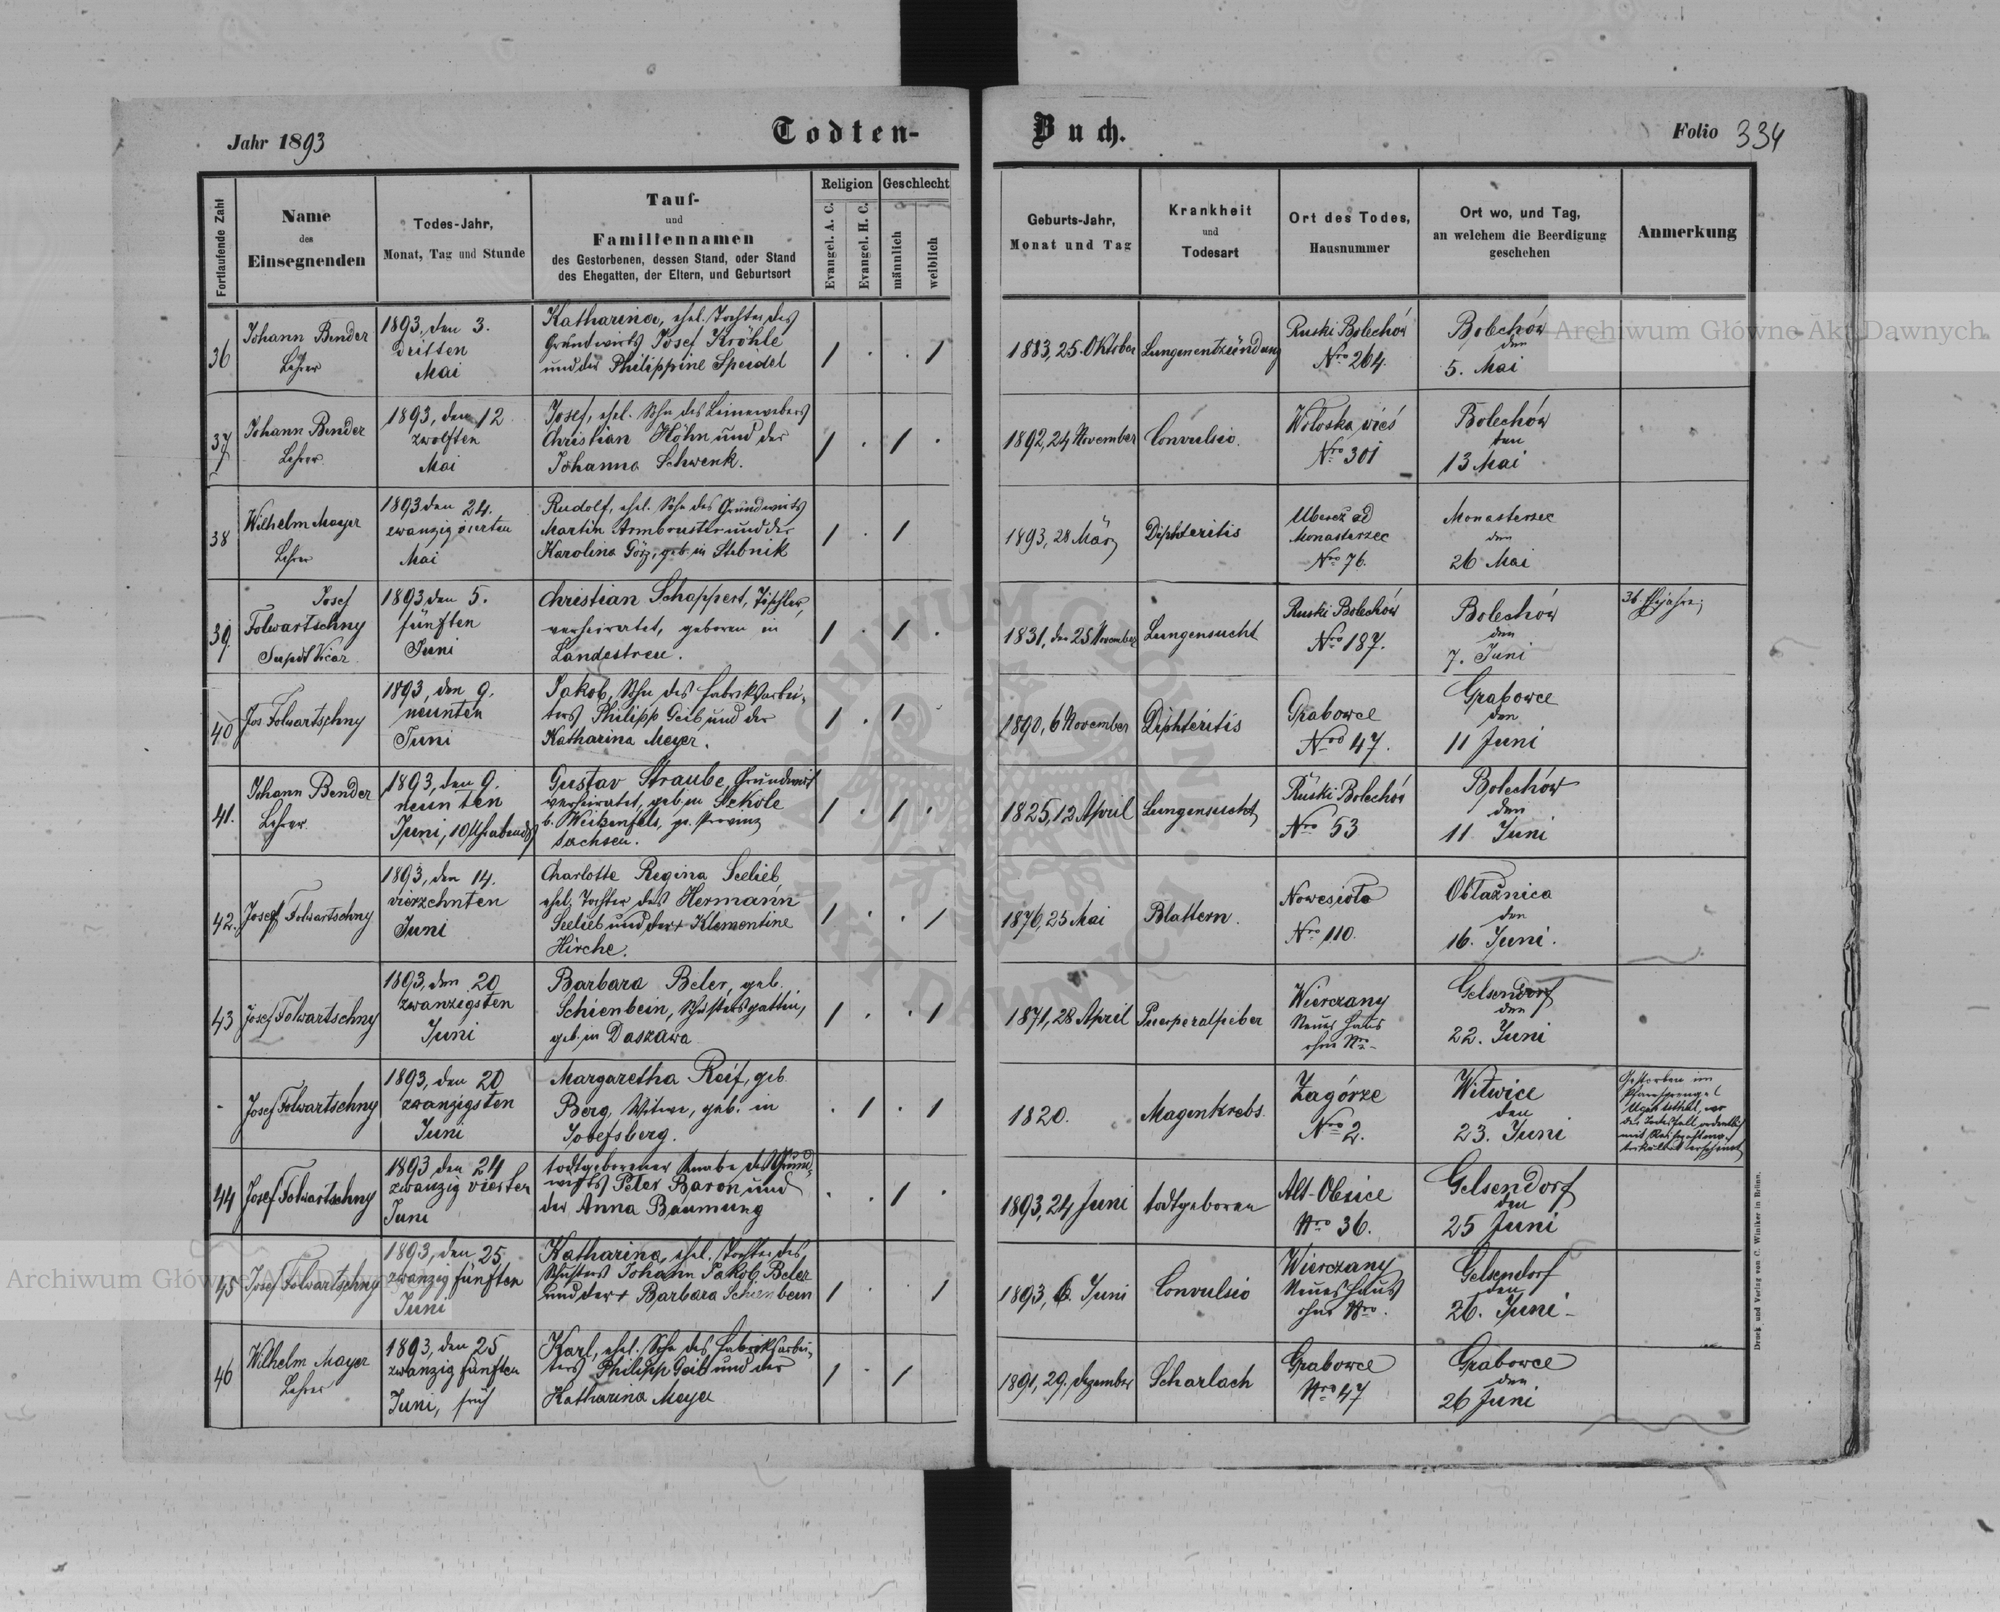 Jahr 1893
Todten-
Buch.
Folio 334
Fortlaufende Zahl
Name
des
Einsegnenden
Todes-Jahr,
Monat, Tag und Stunde
Tauf-
und
Familiennamen
des Gestorbenen, dessen Stand, oder Stand
des Ehegatten, der Eltern, und Geburtsort
Religion
Evangel. A. C.
Evangel. H. C.
Geschlecht
männlich
weiblich
Geburts-Jahr,
Monat und Tag
Krankheit
und
Todesart
Ort des Todes,
Hausnummer
Ort wo, und Tag,
an welchem die Beerdigung
geschehen
Anmerkung
36
Johann Bender
Lehrer
1893, den 3.
Dritten
Mai
Katharina, ehel. Tochter des
Grundwirts Josef Kröhle
und der Philippine Speidel
1883, 25. Oktober
Lungenentzündung
Ruski Bolechów
Nro 264.
Bolechów
den
5. Mai
37
Johann Bender
Lehrer
1893, den 12
zwölften
Mai
Josef, ehel. Sohn des Leinewebers
Christian Höhn und der
Johanna Schwenk.
1892, 24 November
Convulsio.
Wołoska wieś
Nro 301
Bolechów
den
13 Mai
38
Wilhelm Mayer
Lehrer
1893 den 24.
zwanzig vierten
Mai
Rudolf, ehel. Sohn des Grundwirts
Martin Armbruster und der
Karolina Götz, geb. in Stebnik
1893, 28 März
Diphteritis
Monasterzec
Nro 76.
Monasterzec
den
26 Mai
39.
Josef
Folwartschny
Supdt Vicar
1893, den 5.
fünften
Juni
Christian Schappert, Tischler,
verheiratet, geboren in
Landestreu.
1831, den 25 November
Lungensucht
Ruski Bolechów
Nro 187.
Bolechów
den
7. Juni
40
Jos Folwartschny
1893, den 9.
neunten
Juni
Jakob, Sohn des Fabriksarbei-
ters Philipp Geib und der
Katharina Meyer.
1890, 6 November
Diphteritis
Grabowce
Nro 47.
Grabowce
den
11 Juni
41.
Johann Bender
Lehrer
1893, den 9.
neunten
Juni, 10 Uhr abends
Gustav Straube, Grundwirt
verheiratet, geb. in Sckole
b. Weißenfels, pr. Provinz
Sachsen.
1825, 12 April
Lungensucht
Ruski Bolechów
Nro 53
Bolechów
den
11 Juni
42.
Josef Folwartschny
1893, den 14.
vierzehnten
Juni
Charlotte Regina Seelieb
ehel. Tochter des Hermann
Seelieb und der + Klementine
Hirche.
1876, 25 Mai
Blattern.
Nowesioło
Nro 110.
Obłaźnica
den
16. Juni.
43
Josef Folwartschny
1893, den 20
zwanzigsten
Juni
Barbara Beler, geb.
Schienbein, Schustersgattin,
geb. in Daszawa
1871, 28 April
Puerperalfieber
Wierczany
Neues Haus
ohne Nro
Gelsendorf
den
22. Juni
Josef Folwartschny
1893, den 20
zwanzigsten
Juni
Margaretha Reif, geb.
Berg, Witwe, geb. in
Josefsberg.
1820.
Magenkrebs.
Zagórze
Nro 2.
Witwice
den
23. Juni
Gestorben im
Pfarrsprengel
Ugartsthal, wo
der Todesfall ordentlich
mit
44
Josef Folwartschny
1893 den 24
zwanzig vierten
Juni
todtgeborener Knabe des Grund-
wirts Peter Baron und
der Anna Baumung
1893, 24 Juni
todtgeboren
Alt-Oleiice
Nro 36.
Gelsendorf
den
25 Juni
45
Josef Folwartschny
1893, den 25
zwanzig fünften
Juni
Katharina, ehel. Tochter des
Schusters Johann Jakob Beler
und der + Barbara Schienbein
1893, 6. Juni
Convulsio
Wierczany
Neues Haus
ohne Nro.
Gelsendorf
den
26. Juni
46
Wilhelm Mayer
Lehrer
1893, den 25
zwanzig fünften
Juni, früh
Karl, ehel. Sohn des Fabriksarbei-
ters Philipp Geib und der
Katharina Meyer
1891, 29. Dezember
Scharlach
Grabowce
Nro 47
Grabowce
den
26 Juni
Druck und Verlag von C. Winiker in Brünn.
Archiwum Główne Akt Dawnych
Archiwum Główne Akt Dawnych
ARCHIWUM GŁÓWNE AKT DAWNYCH